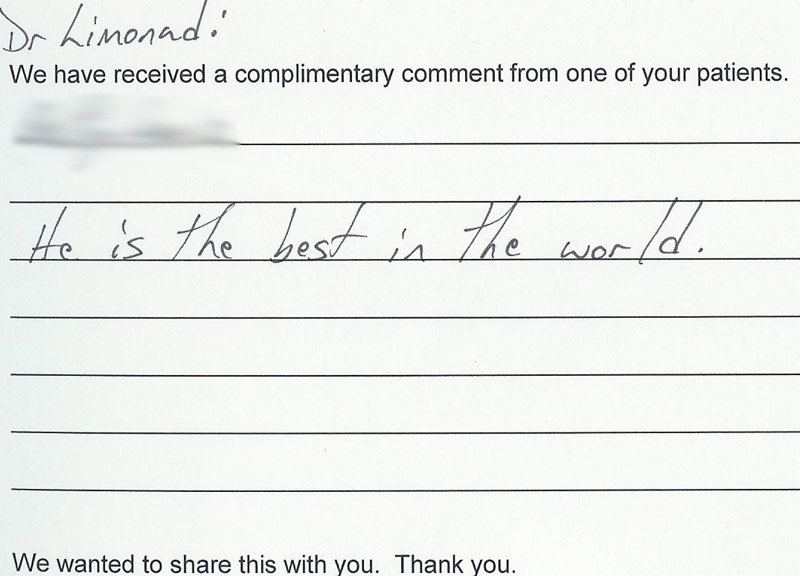 Dr Limonadi
We have received a complimentary comment from one of your patients.
He is the best in the world.
We wanted to share this with you. Thank you.